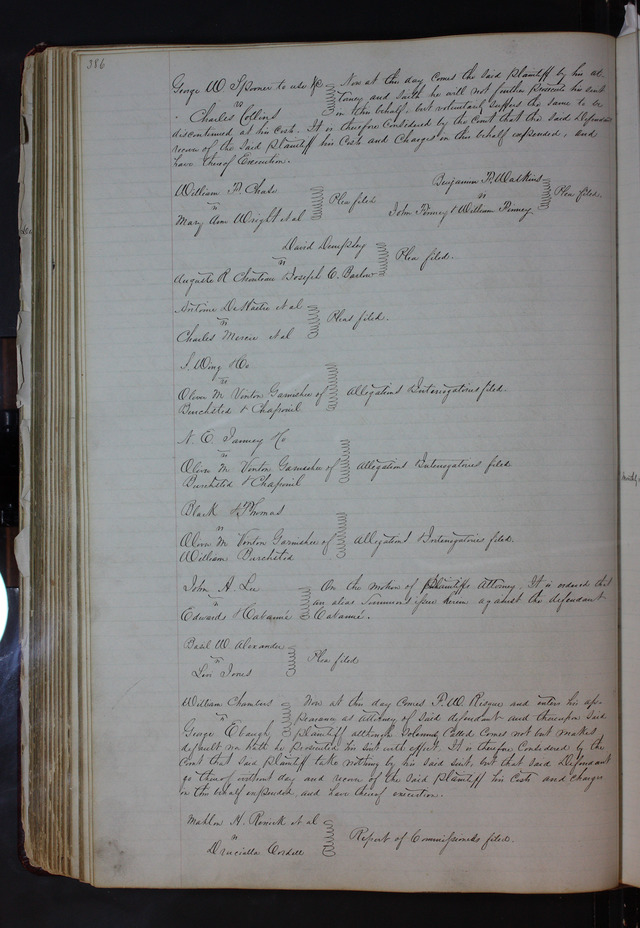 386
George W Spooner to use &c Now at this day comes the said Plaintiff by his at-
vs torney and saith he will not further prosecute his suit
Charles Collins in this behalf, but voluntarily suffers the same to be
discontinued at his cost. It is therefore Considered by the Court that the said Defendant
recover of the said Plaintiff his Costs and Charges in this behalf expended, and
have thereof Execution.
William P. Chase
vs Plea filed
Mary Ann Wright et al
Benjamin P. Watkins
vs Plea filed.
John Finney & William Finney
David Dempsey
vs Plea filed.
Auguste R Chouteau & Joseph C. Barlow
Antoine et al
vs Pleas filed.
Charles Mercier et al
S. Wing & Co
vs
Oliver M. Vinton Garnishee of Allegations & Interrogatories filed.
Burchsted &
N. E. Janney & Co
vs
Oliver M Vinton Garnishee of Allegations & Interrogatories filed.
Burchsted &
Black & Thomas
vs
Oliver M Vinton Garnishee of Allegations & Interrogatories filed.
William Burchsted
John A. Lee On the motion of Plaintiffs Attorney. It is ordered that
vs an alias Summons issue herein against the defendant
Edward & Cabanné Cabanné.
Basil W. Alexander
vs Plea filed
Levi Jones
William Chambers Now at this day comes F. W. Risque and enters his ap-
vs pearance as attorney of said defendant and thereupon said
George Ebaugh plaintiff although Solemnly Called Comes not but makes
default nor hath he prosecuted his suit with effect. It is therefore Considered by the
Court that said Plaintiff take nothing by his said suit, but that said Defendant
go thereof without day and recover of the said Plaintiff his Costs and charges
in this behalf expended, and have thereof execution.
Mahlon H. Renick et al
vs Report of Commissioners filed.
Drucilla Cordell